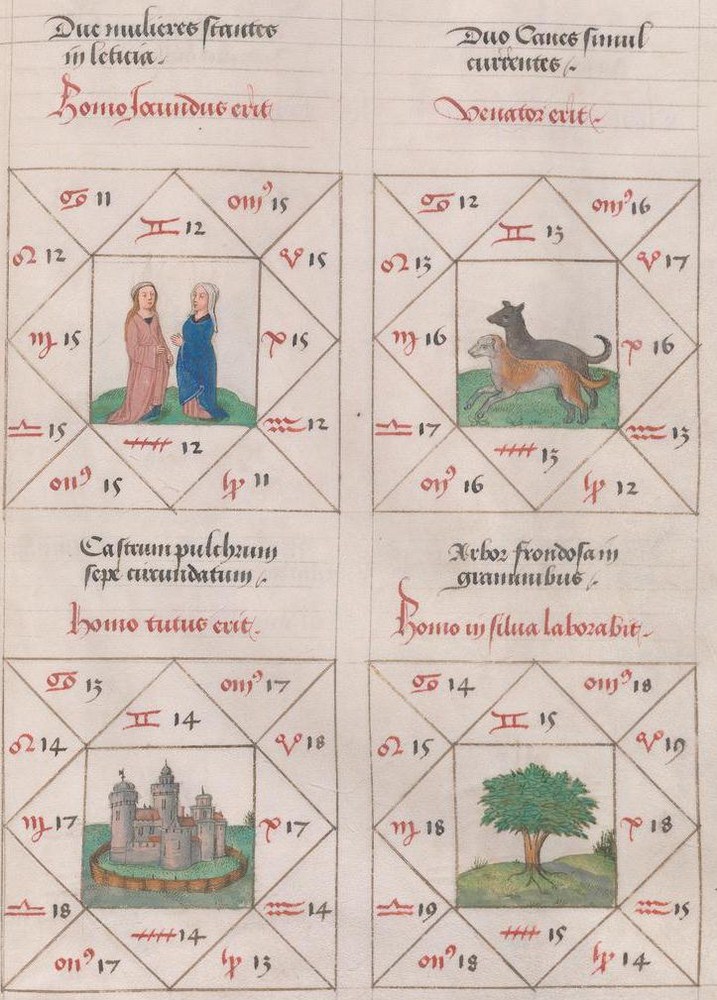 Due mulieres stantes
in leticia.
Homo Jocundus erit
♋ 11
♊ 12
♉ 15
♌ 12
♈ 15
♍ 15
♓ 15
♎ 15
♒ 12
♐ 12
♏ 15
♑ 11
Duo Canes simul
currentes
Venator erit
♋ 12
♊ 13
♉ 16
♌ 13
♈ 17
♍ 16
♓ 16
♎ 17
♒ 13
♐ 13
♏ 16
♑ 12
Castrum pulchrum
sepe circundatum
Homo tutus erit
♋ 13
♊ 14
♉ 17
♌ 14
♈ 18
♍ 17
♓ 17
♎ 18
♒ 14
♐ 14
♏ 17
♑ 13
Arbor frondosa in
graminibus
Homo in silua laborabit
♋ 14
♊ 15
♉ 18
♌ 15
♈ 19
♍ 18
♓ 18
♎ 19
♒ 15
♐ 15
♏ 18
♑ 14